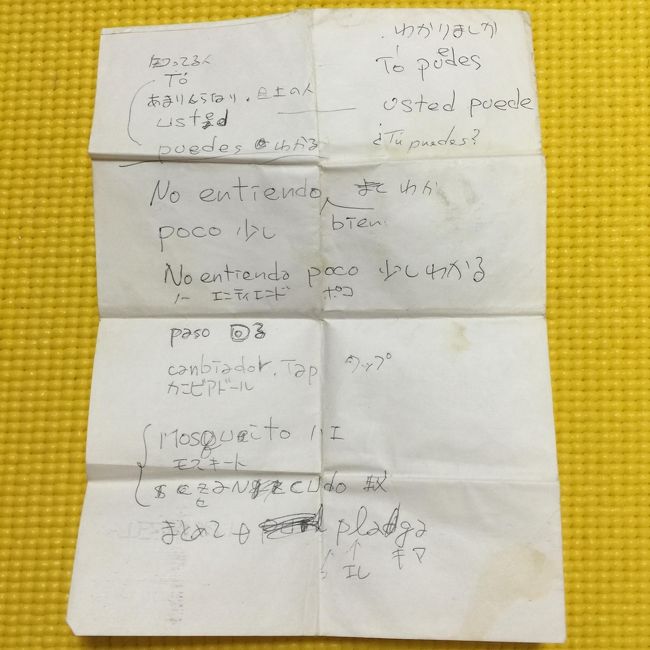 知ってる人
Tó
あまりしらない、目上の人
usted
puedes わかる
わかりましか
Tó puedes
usted puede
¿Tu puedes?
No entiendo わか
bien
poco 少し
No entiendo poco 少しわかる
ノー エンティエンド ポコ
paso
canbiador. Tap タップ
カンビアドール
Mosquito ハエ
モスキート
cudo 蚊
まとめて plaga
エレ